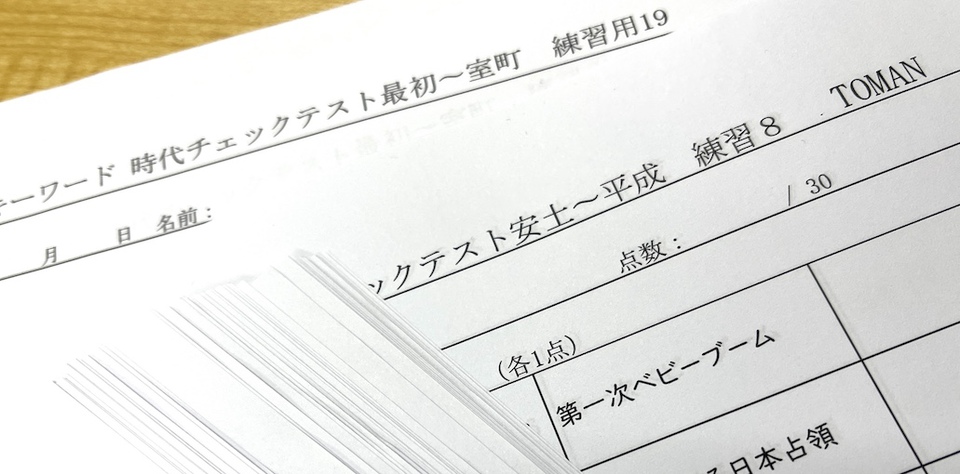 ーワード 時代チェックテスト最初～室町 練習用19
月 日 名前：
ックテスト安土～平成 練習８ TOMAN
点数： / 30
(各1点)
第一次ベビーブーム
る日本占領